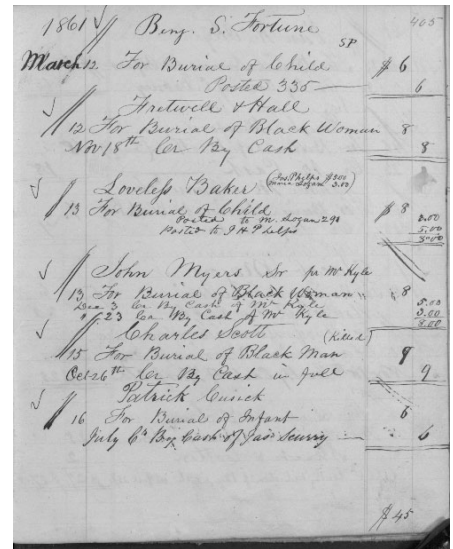 1861 Benj. S. Fortune 465
SP
March 12 For Burial of Child $ 6
Posted 335 6
Fretwell & Hall
12 For Burial of Black Woman 8
Nov 18th Cr By Cash 8
Loveless Baker (Jas. Phelps $5.00
Maria Logan 3.00)
13 For Burial of Child $ 8
Posted to M. Logan 290 3.00
Posted to J H Phelps 5.00
8.00
John Myers Sr pr Mr Kyle
13 For Burial of Black Woman 8
Dec 3 Cr By Cash of Mr Kyle 5.00
" 23 Cr By Cash of Mr Kyle 3.00
8.00
Charles Scott (Killed)
15 For Burial of Black Man 9
Oct 26th Cr By Cash in full 9
Patrick Cusick
16 For Burial of Infant 6
July 6th By Cash of Jas Scurry 6
$ 45